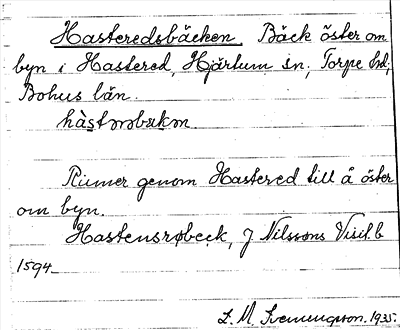 Hasteredsbäcken. Bäck öster om
byn i Hastered, Hjärtum sn, Torpe hd,
Bohus län.
Rinner genom Hastered till å öster
om byn.
Hastensrøbeck, J Nilssons Visit.b
1594
L. M. Svenungsson. 1935.